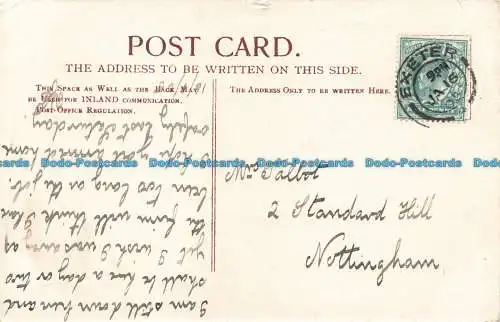 POST CARD.
THE ADDRESS TO BE WRITTEN ON THIS SIDE.
THIS SPACE AS WELL AS THE BACK MAY
BE USED FOR INLAND COMMUNICATION.
POST-OFFICE REGULATION.
THE ADDRESS ONLY TO BE WRITTEN HERE.
EXETER
9 PM
JA 16
Mrs Talbot
2 Standard Hill
Nottingham
I am still down here and
shall be here a day or two
yet I wish I was away as
the firm will think I have
been too long on the job.
I hope you got home
safely last Saturday
Dodo-Postcards Dodo-Postcards Dodo-Postcards Dodo-Postcards Dodo-Postcards